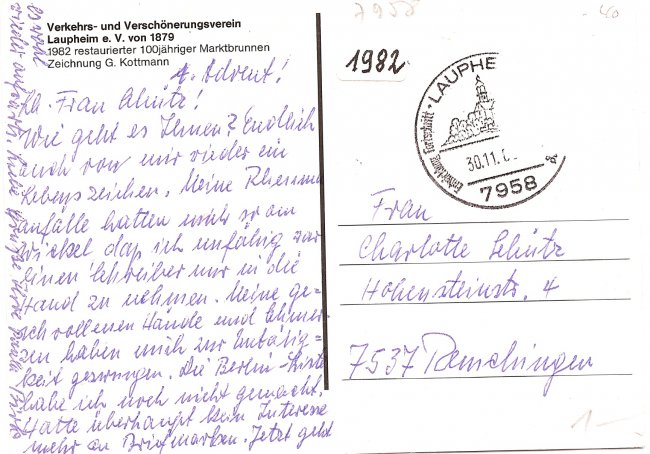 Verkehrs- und Verschönerungsverein
Laupheim e. V. von 1879
1982 restaurierter 100jähriger Marktbrunnen
Zeichnung G. Kottmann
1. Advent!
Lb. Frau Schütz!
Wie geht es Ihnen? Endlich
auch von mir wieder ein
Lebenszeichen. Meine Rheuma
anfälle hatten mich so am
Wickel daß ich unfähig war
einen Schreiber nur in die
Hand zu nehmen. Meine ge-
schwollenen Hände und Schmer
zen haben mich zur Untätig=
keit gezwungen. Die Berlin-Liste
habe ich noch nicht gemacht.
Hatte überhaupt kein Interesse
mehr an Briefmarken. Jetzt geht
es wohl
wieder aufwärts, liebe Grüße Ihre
7958
40
1982
LAUPHE
30.11.
7958
Frau
Charlotte Schütz
Hohensteinstr. 4
7537 Remchingen
1-